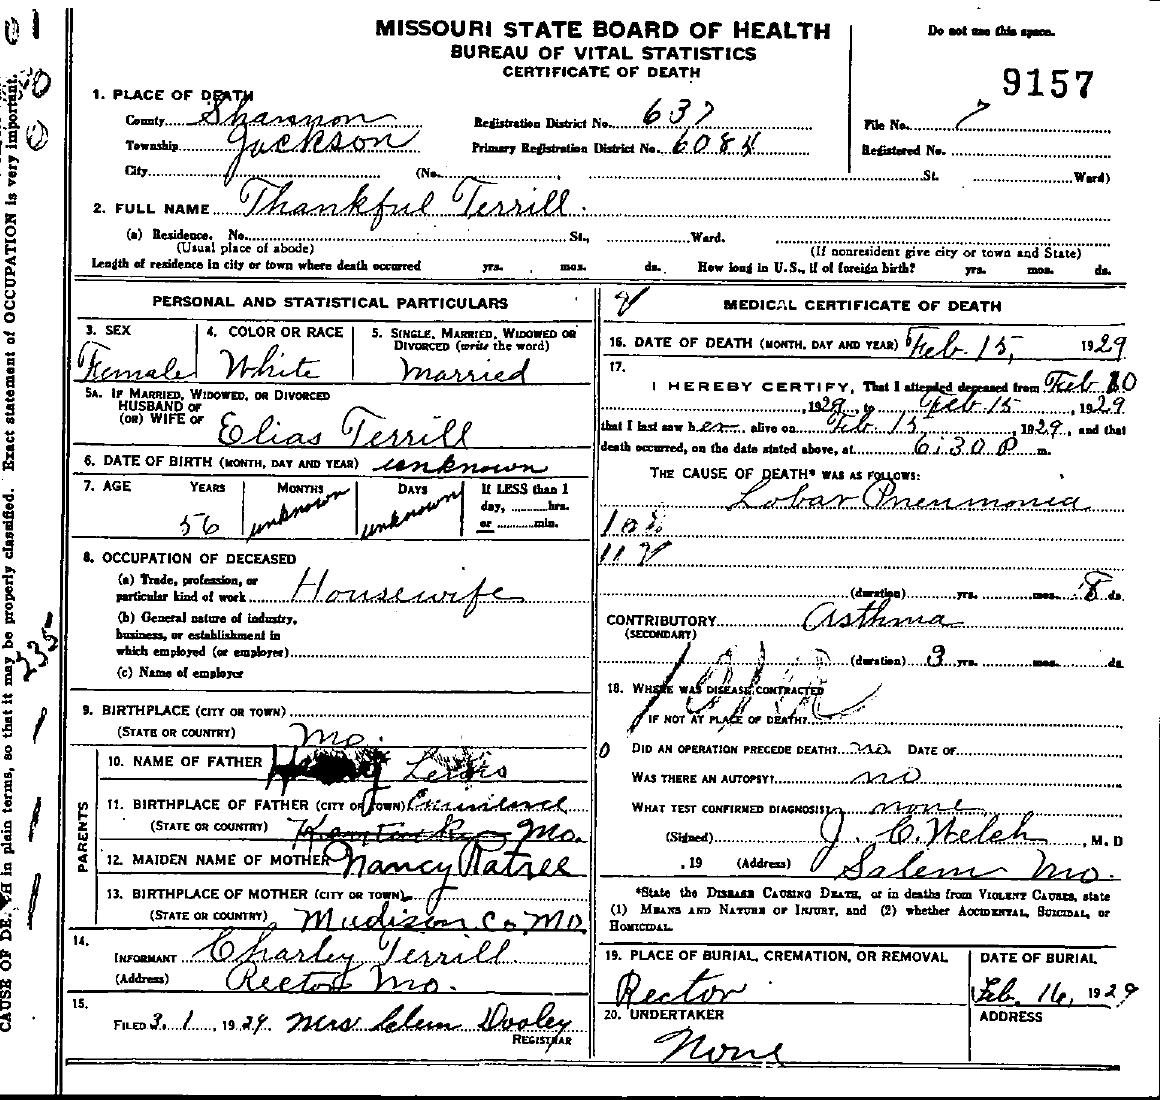 MISSOURI STATE BOARD OF HEALTH
BUREAU OF VITAL STATISTICS
CERTIFICATE OF DEATH
Do not use this space.
9157
1. PLACE OF DEATH
County Shannon Registration District No. 637 File No. 7
Township Jackson Primary Registration District No. 6084 Registered No.
City (No. St. Ward)
2. FULL NAME Thankful Terrill.
(a) Residence. No. St., Ward.
(Usual place of abode) (If nonresident give city or town and State)
Length of residence in city or town where death occurred yrs. mos. ds. How long in U.S., if of foreign birth? yrs. mos. ds.
PERSONAL AND STATISTICAL PARTICULARS
3. SEX Female
4. COLOR OR RACE White
5. SINGLE, MARRIED, WIDOWED OR DIVORCED (write the word) Married
5A. IF MARRIED, WIDOWED, OR DIVORCED
HUSBAND OF
(OR) WIFE OF Elias Terrill
6. DATE OF BIRTH (MONTH, DAY AND YEAR) unknown
7. AGE YEARS MONTHS DAYS If LESS than 1
day, hrs.
or min.
56 unknown unknown
8. OCCUPATION OF DECEASED
(a) Trade, profession, or
particular kind of work Housewife
(b) General nature of industry,
business, or establishment in
which employed (or employer)
(c) Name of employer
9. BIRTHPLACE (CITY OR TOWN)
(STATE OR COUNTRY) Mo.
PARENTS
10. NAME OF FATHER Lewis
11. BIRTHPLACE OF FATHER (CITY OR TOWN) Eminence
(STATE OR COUNTRY) Mo.
12. MAIDEN NAME OF MOTHER Nancy Ratree
13. BIRTHPLACE OF MOTHER (CITY OR TOWN)
(STATE OR COUNTRY) Madison Co. Mo.
14. INFORMANT Charley Terrill.
(Address) Rector Mo.
15. FILED 3. 1, 1929 Mrs Clem Dooley
REGISTRAR
MEDICAL CERTIFICATE OF DEATH
16. DATE OF DEATH (MONTH, DAY AND YEAR) Feb. 15, 1929
17.
I HEREBY CERTIFY, That I attended deceased from Feb 10
, 1929, to Feb 15, 1929
that I last saw her alive on Feb 15, 1929, and that
death occurred, on the date stated above, at 6:30 P m.
THE CAUSE OF DEATH* WAS AS FOLLOWS:
Lobar Pneumonia
(duration) yrs. mos. 8 ds.
CONTRIBUTORY Asthma
(SECONDARY)
(duration) 3 yrs. mos. ds.
18. WHERE WAS DISEASE CONTRACTED
IF NOT AT PLACE OF DEATH?
DID AN OPERATION PRECEDE DEATH? no. DATE OF
WAS THERE AN AUTOPSY? no
WHAT TEST CONFIRMED DIAGNOSIS? none
(Signed) J. C. Welch, M. D
, 19 (Address) Salem Mo.
*State the DISEASE CAUSING DEATH, or in deaths from VIOLENT CAUSES, state
(1) MEANS AND NATURE OF INJURY, and (2) whether ACCIDENTAL, SUICIDAL, or
HOMICIDAL.
19. PLACE OF BURIAL, CREMATION, OR REMOVAL Rector
DATE OF BURIAL Feb. 16, 1929
20. UNDERTAKER None
ADDRESS
in plain terms, so that it may be properly classified. Exact statement of OCCUPATION is very important.
CAUSE OF